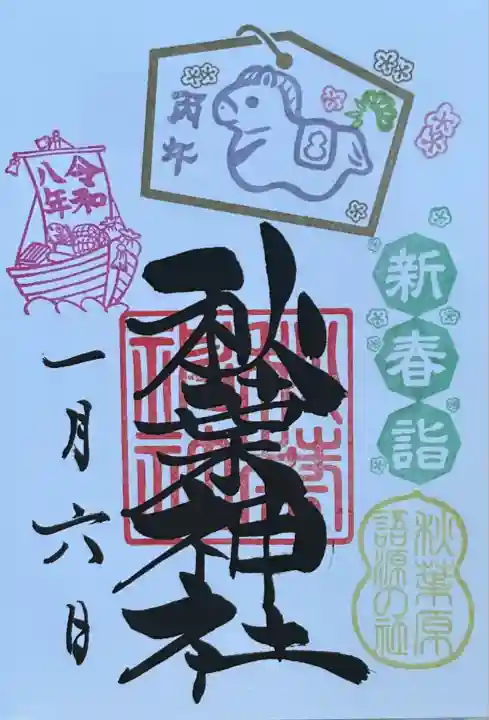 丙午
令和
八年
新春詣
秋葉神社
一月六日
秋葉原
語源の社